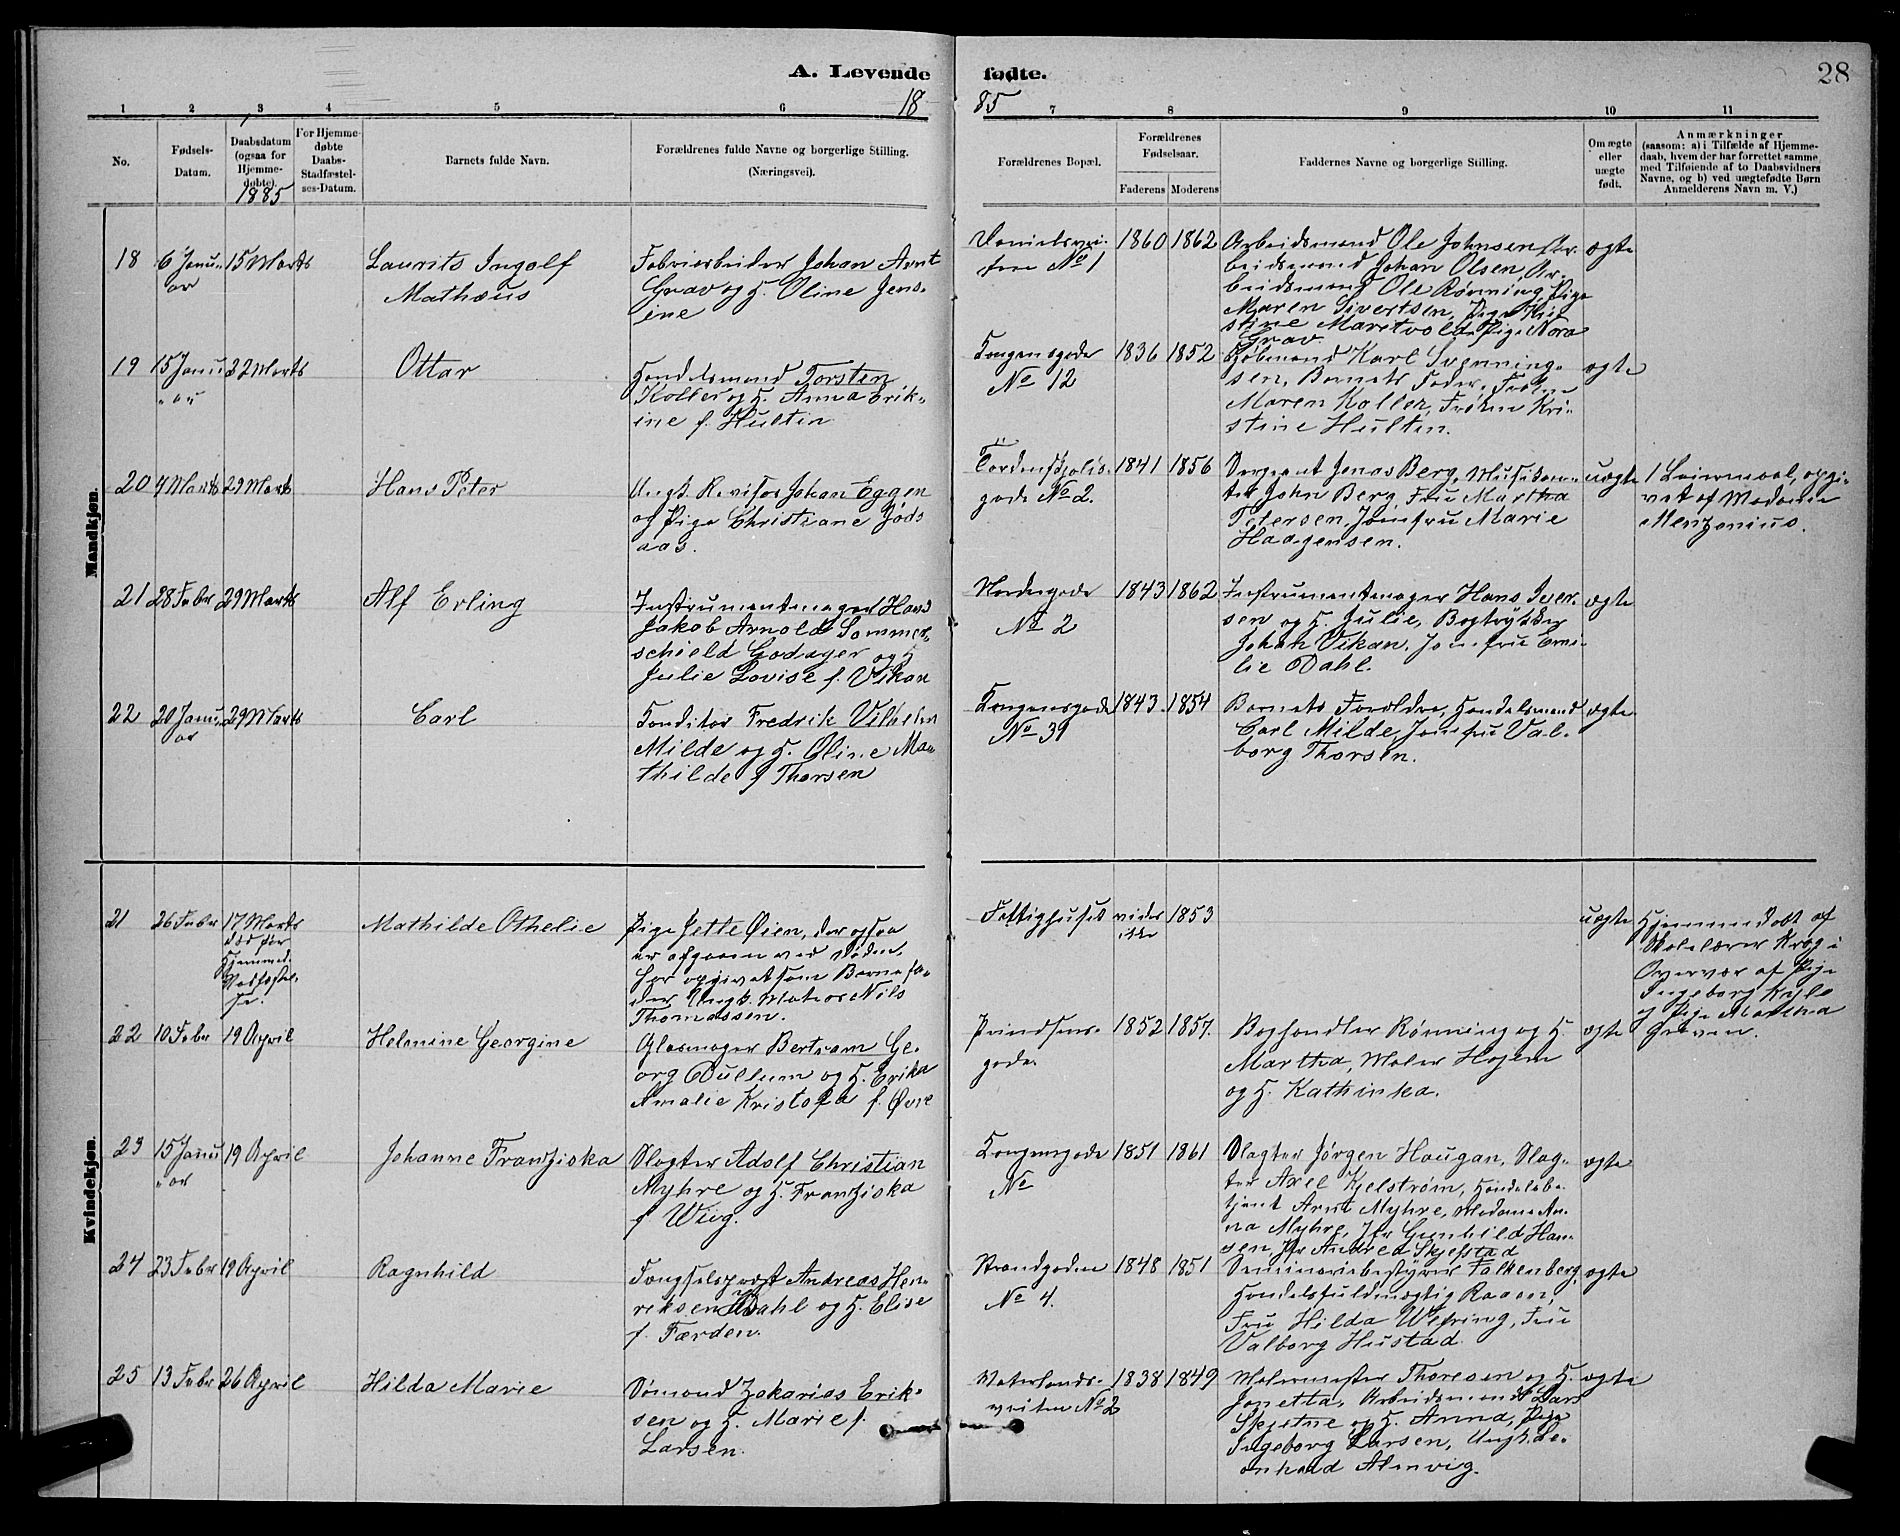 A. Levende fødte.
28
1885
1 2 3 4 5 6 7 8 9 10 11
No.
Fødsels-
Datum.
Daabsdatum
(ogsaa for
Hjemme-
døbte).
1885
For Hjemme-
døbte
Daabs-
Stadfæstel-
ses-Datum.
Barnets fulde Navn.
Forældrenes fulde Navne og borgerlige Stilling.
(Næringsvei).
Forældrenes Bopæl.
Forældrenes
Fødselsaar.
Faderens Moderens
Faddernes Navne og borgerlige Stilling.
Om ægte
eller
uægte
født.
Anmærkninger
(saasom: a) i Tilfælde af Hjemme-
daab, hvem der har forrettet samme
med Tilføiende af to Daabsvidners
Navne, og b) ved uægtefødte Børn
Anmelderens Navn m. V.)
Mandkjøn.
18
6 Janu-
ar
15 Marts
Laurits Ingolf
Mathæus
Fabriarbeider Johan Arnt
Grav og H. Oline Jens-
ine
Danielsvei-
ten No 1
1860
1862
Arbeidsmand Ole Johnsen, Ar-
beidsmand Johan Olsen, Ar-
beidsmand Ole Rønning, Pige
Maren Sivertsen, Pige Kri-
stine Maritvold, Pige Nora
Grav
ægte
19
15 Janu
ar
22 Marts
Ottar
Handelsmand Torsten
Koller og H. Anna Erik-
ine f. Hultin
Kongensgade
No 12
1836
1852
Kjøbmand Karl Svenning-
sen, Barnets Fader, Frøken
Maren Koller, Frøken Kri-
stine Hultin.
ægte
20
4 Marts
29 Marts
Hans Peter
Ungk. Revisor Johan Eggen
og Pige Christiane Jøds
aas.
Tordenskjolds-
gade No 2.
1841
1856
Sergeant Jonas Berg, Musikan-
ter John Berg, Fru Martha
Petersen, Jomfru Marie
Haagensen.
uægte
1 Leiermaal, opgi-
vet af Madame
Menzonius.
21
28 Febr
29 Marts
Alf Erling
Instrumentmager Hans
Jakob Arnold Sommer-
schield Godager og H
Julie Lovise f. Vikan
Nordregade
No 2
1843
1862
Instrumentmager Hans Iver-
sen og H. Julie, Bogtrykker
Johan Vikan, Jomfru Emi-
lie Dahl.
ægte
22
20 Janu
ar
29 Marts
Carl
Konditor Fredrik Vilhelm
Milde og H. Oline Ma-
thilde f Thorsen
Kongensgade
No 31
1843
1854
Barnets Forældre, Handelsmand
Carl Milde, Jomfru Val-
borg Thorsen.
ægte
Kvindekjøn.
21
26 Febr
17 Marts
død før
Hjemmed.
Stadfæstel-
se.
Mathilde Othelie
Pige Jette Øien, der ogsaa
er afgaaen ved Døden.
Har opgivet som Barnefa-
der Ungk. Matros Nils
Thomassen.
Fattighuset
vides
ikke
1853
uægte
Hjemmedøbt af
Skolelærer Krog i
Overvær af Pige
Ingeborg Kyle
og Pige Martha
Greven.
22
10 Febr
19 April
Helmine Georgine
Glasmager Bertram Ge-
org Dullum og H. Erika
Amalie Kristofa f. Øvre
Prindsens-
gade.
1852
1857.
Boghandler Rønning og H
Martha, Maler Hojem
og H. Kathinka.
ægte
23
15 Janu
ar
19 April
Johanne Franziska
Slagter Adolf Christian
Myhre og H. Franziska
f Wiig.
Kongensgade
No
1851
1861
Slagter Jørgen Haugan, Slag-
ter Axel Kjelstrøm, Handelsbe-
tjent Arnt Myhre, Madame An-
na Myhre, Jfr Gunhild Han-
sen, Jfr Andrea Skjefstad
ægte
24
23 Febr
19 April
Ragnhild
Fængselspræst Andreas Hen-
riksen Dahl og H. Elise
f. Færden.
Strandgaden
No 4.
1848
1851
Seminariebestyrer Falkenberg,
Handelsfuldmægtig Raaen,
Fru Hilda Wefring, Fru
Valborg Hustad.
ægte
25
13 Febr
26 April
Hilda Marie
Sømand Zakarias Erik-
sen og H. Marie f.
Larsen.
Vaterlands-
veiten No 2
1838
1849
Malermester Thoresen og H.
Jonetta, Arbeidsmand Lars
Skjetne og H. Anna, Pige
Ingeborg Larsen, Ungk. Le-
onhard Almvig.
ægte